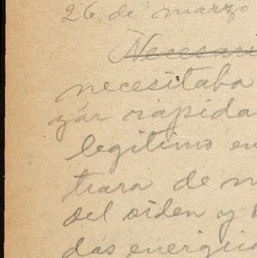 26 de marzo
Necesari
necesitaba
zar rapida
legitimo en
tiara de n
del orden y
das energica